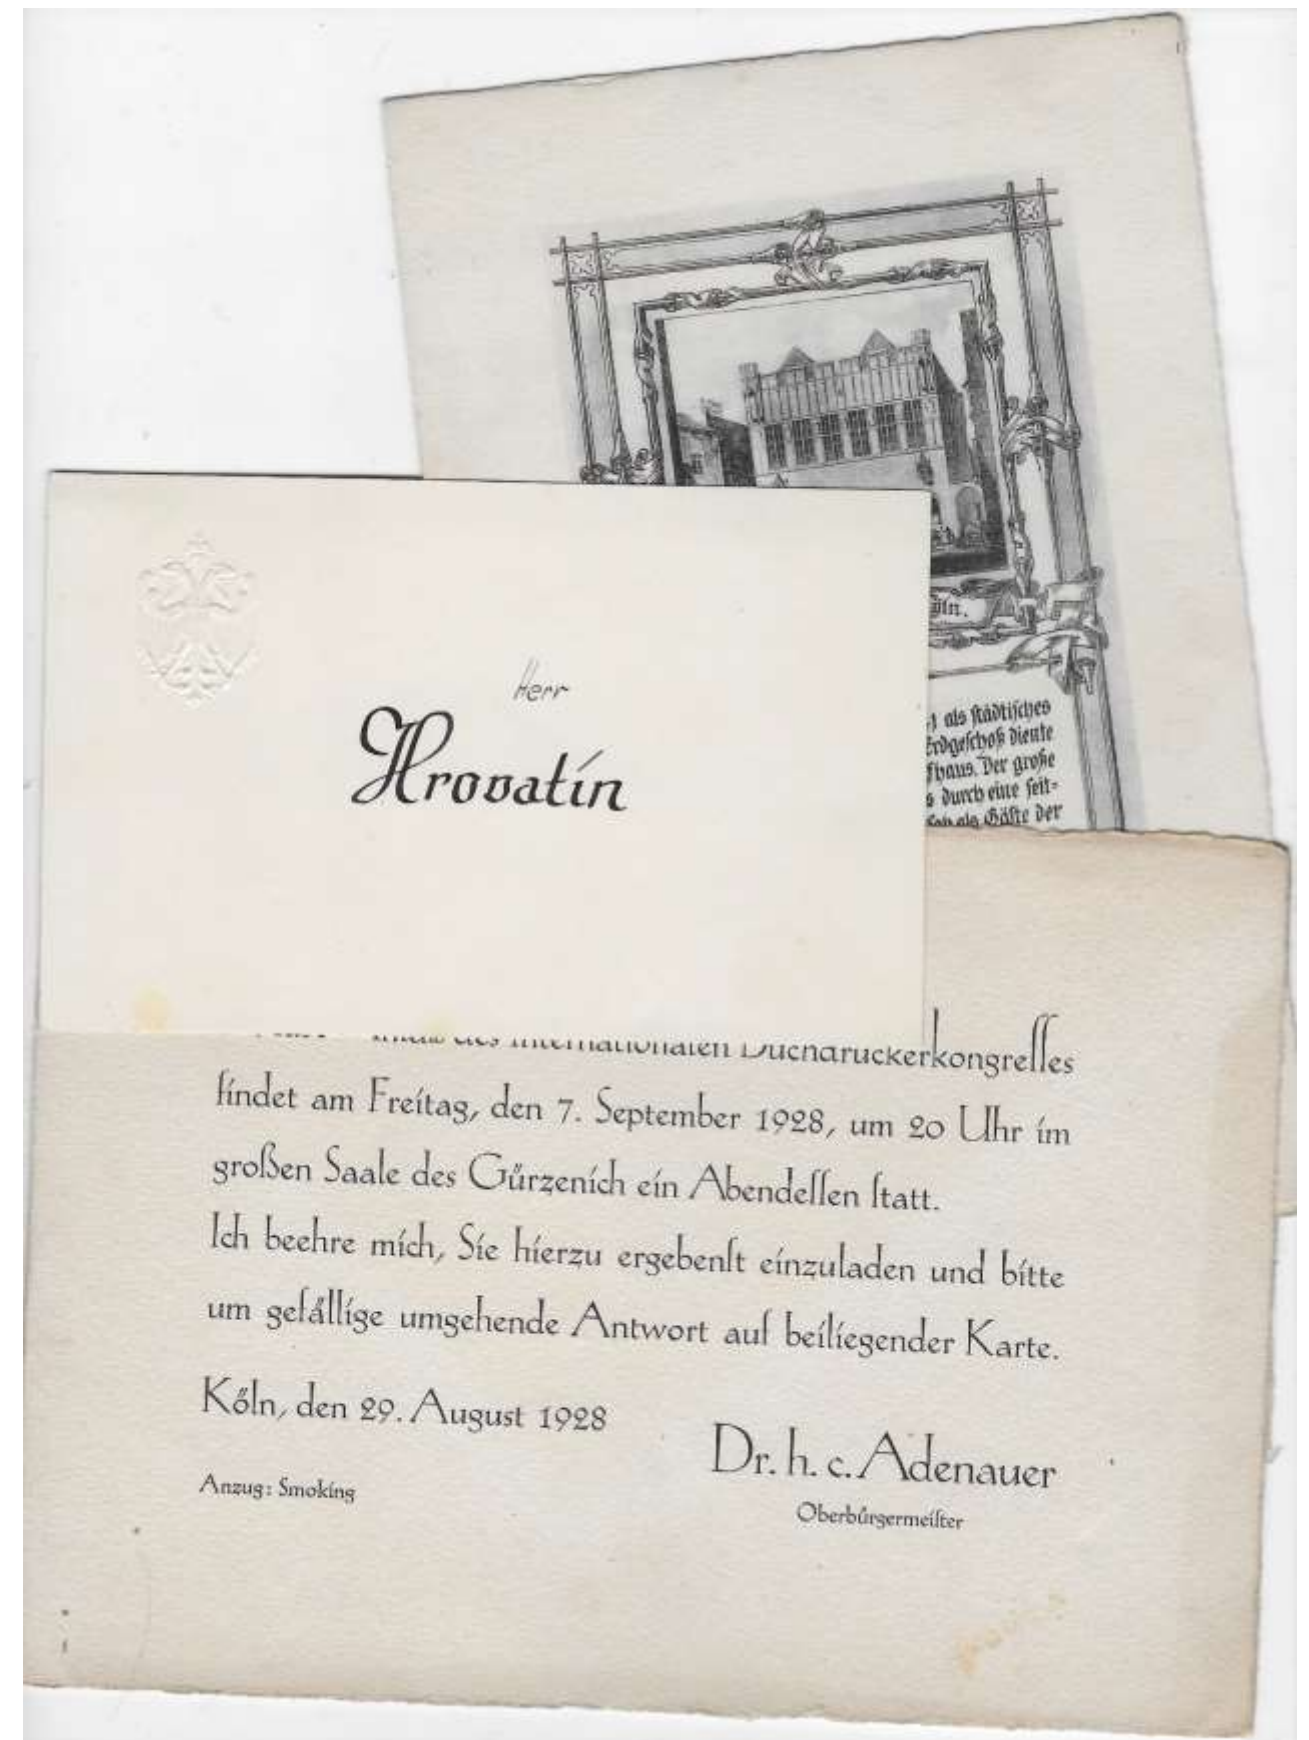 öln.
als städtisches
Erdgeschoß diente
fhaus. Der große
durch eine seit-
als Gäste der
Herr
Hrovatin
des Internationalen Buchdruckerkongresses
findet am Freitag, den 7. September 1928, um 20 Uhr im
großen Saale des Gürzenich ein Abendessen statt.
Ich beehre mich, Sie hierzu ergebenst einzuladen und bitte
um gefällige umgehende Antwort auf beiliegender Karte.
Köln, den 29. August 1928
Dr. h. c. Adenauer
Anzug: Smoking
Oberbürgermeister